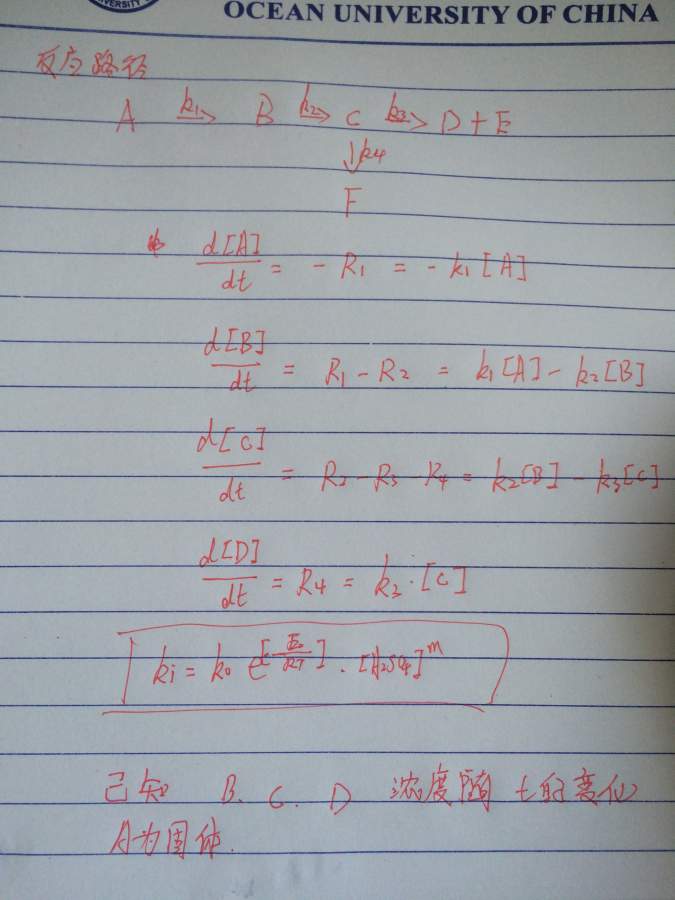 OCEAN UNIVERSITY OF CHINA
反应路径
A k₁→ B k₂→ C k₃→ D + E
↓k₄
F
d[A]/dt = - R₁ = - k₁[A]
d[B]/dt = R₁ - R₂ = k₁[A] - k₂[B]
d[C]/dt = R₂ - R₃ - R₄ = k₂[B] - k₃[C]
d[D]/dt = R₄ = k₃·[C]
ki = k₀ e^[-E₀/RT] · [H₂SO₄]^m
已知 B、C、D 浓度随 t的变化
A为固体.